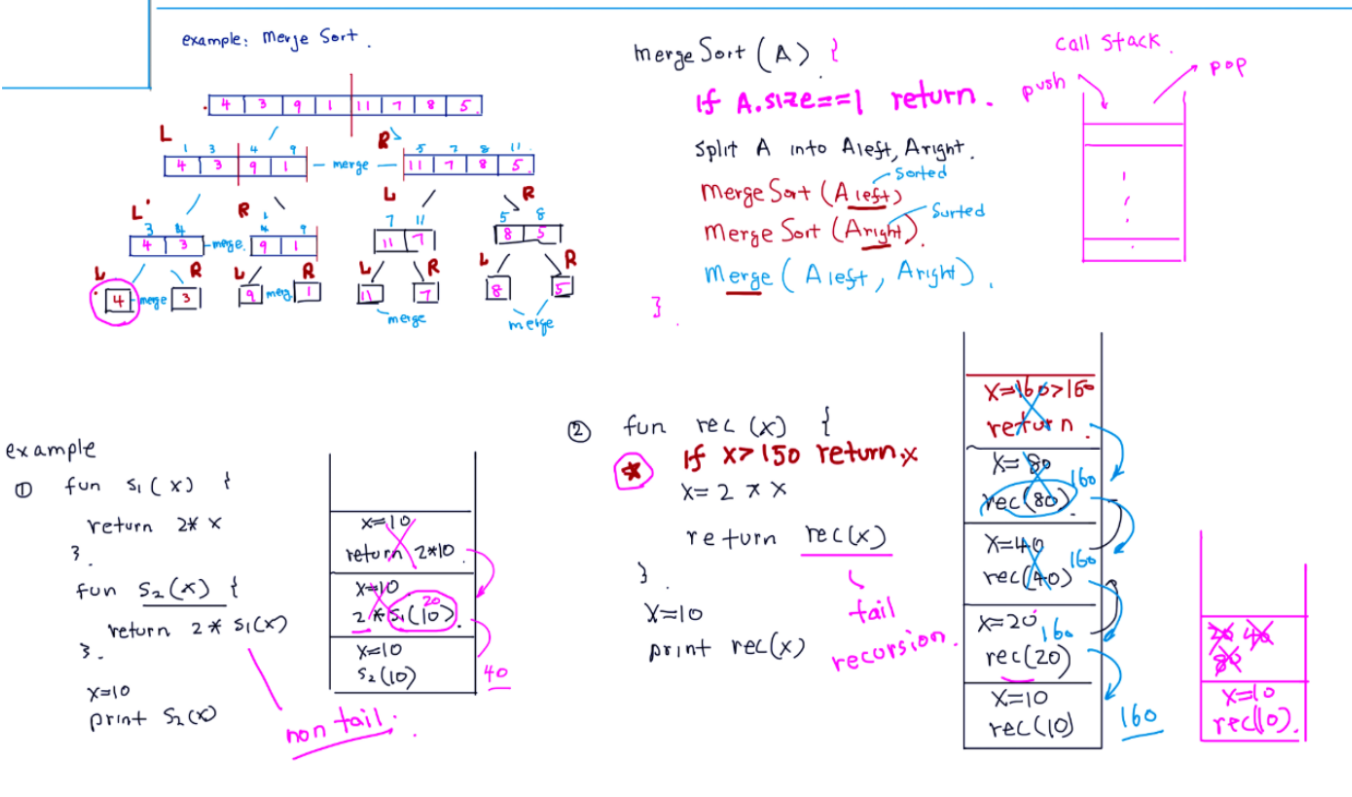 example: Merge Sort.
4 3 9 1 11 7 8 5
L R
1 3 4 9
4 3 9 1
merge
5 7 8 11
11 7 8 5
L R L R
3 4
4 3
merge
1 9
9 1
7 11
11 7
5 8
8 5
L R L R L R L R
4 merge 3
9 merg 1
11 7
8 5
merge
merge
mergeSort (A) {
If A.size==1 return.
split A into Aleft, Aright.
sorted
mergeSort (Aleft)
Sorted
mergeSort (Aright).
Merge (Aleft, Aright).
}
call stack.
push
pop
example
① fun s1(x) {
return 2* x
}.
fun S2(x) {
return 2* S1(x)
}.
x=10
print S2(x)
non tail.
x=10
return 2*10
x=10
20
2*S1(10)
x=10
S2(10)
40
② fun rec (x) {
If x>150 return x
x= 2 * x
return rec(x)
}
x=10
print rec(x)
tail
recursion.
x=160>150
return.
x=80
160
rec(80)
x=40
160
rec(40)
x=20
160
rec(20)
x=10
rec(10)
160
20 40
80
x=10
rec(10).